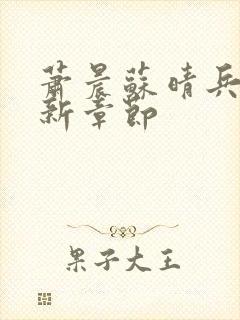 蕭晨蘇晴兵
新章節
果子大王